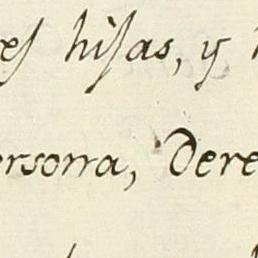 es hijas, y
ersona, Dere